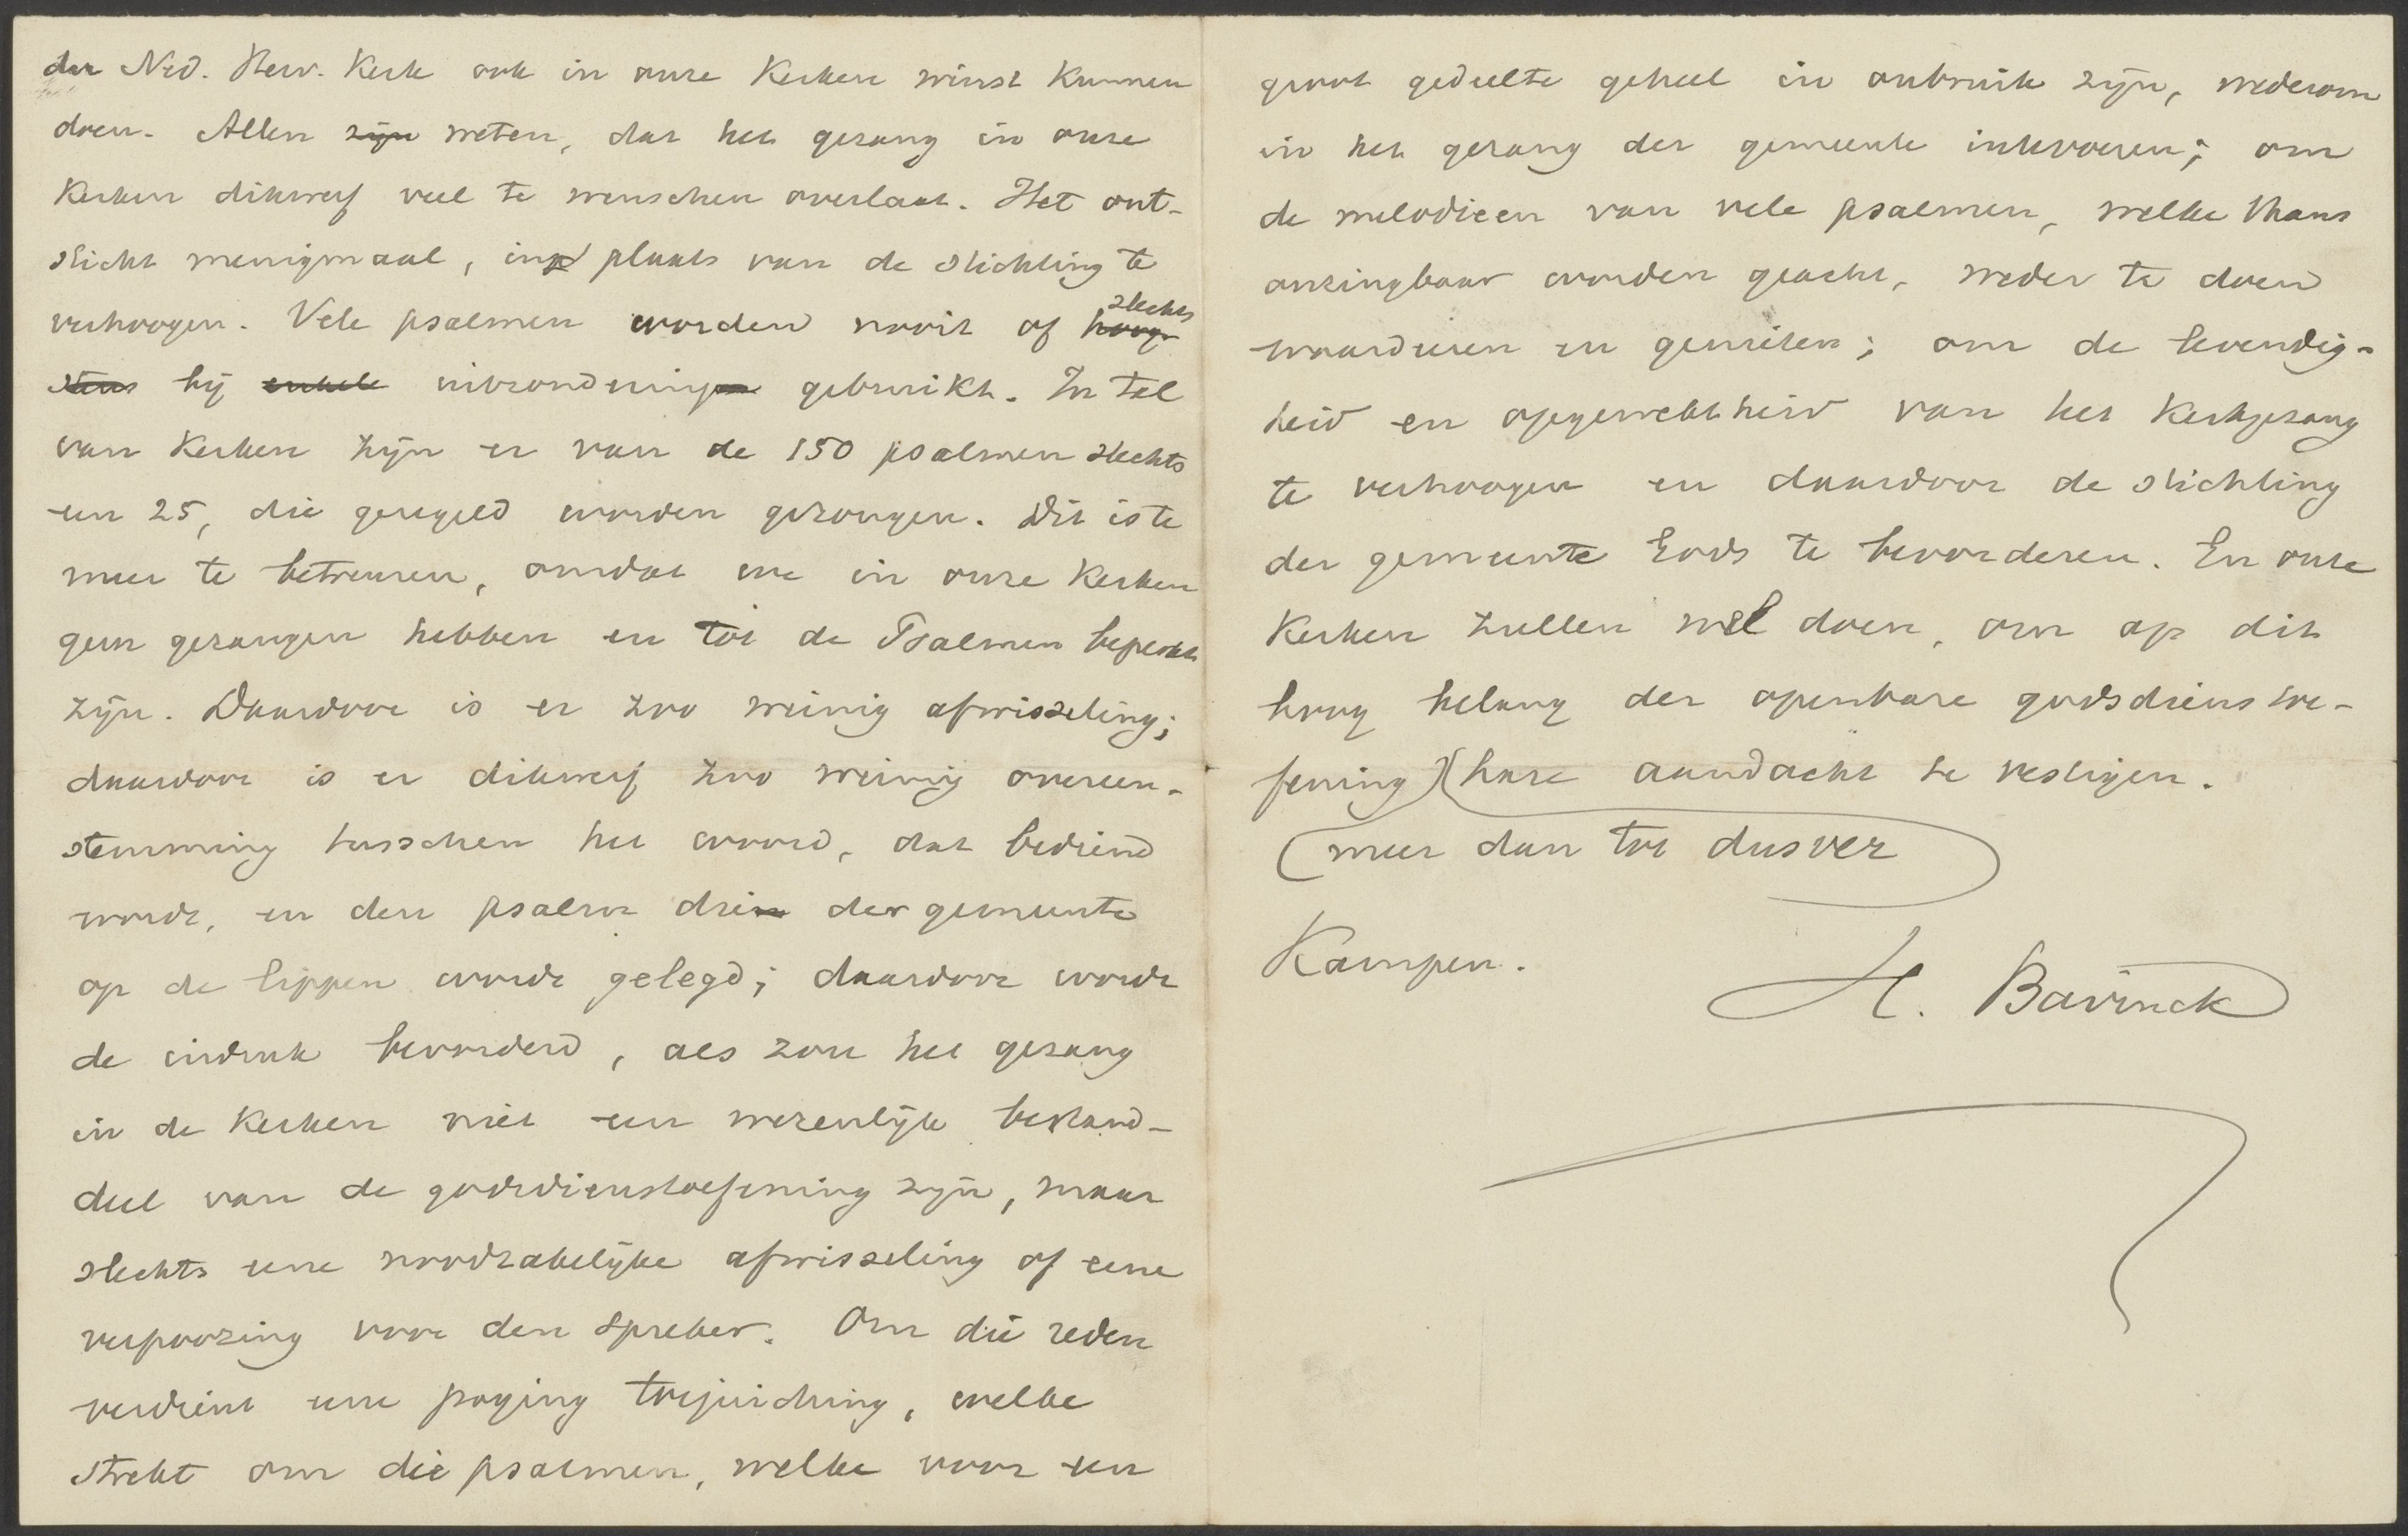 der Ned. Herv. Kerk ook in onze Kerken winst kunnen
doen. Allen zijn weten, dat het gezang in onze
Kerken dikwerf veel te wenschen overlaat. Het ont-
sticht menigmaal, in plaats van de stichting te
verhoogen. Vele psalmen worden nooit of hoog- slechts
stens bij enkele uitzondering gebruikt. In tal
van Kerken zijn er van de 150 psalmen slechts
een 25, die geregeld worden gezongen. Dit is te
meer te betreuren, omdat we in onze Kerken
geen gezangen hebben en tot de Psalmen beperkt
zijn. Daardoor is er zoo weinig afwisseling;
daardoor is er dikwerf zoo weinig overeen-
stemming tusschen het woord, dat bediend
wordt, en den psalm die der gemeente
op de lippen wordt gelegd; daardoor wordt
de indruk bevorderd, als zou het gezang
in de Kerken niet een wezenlijk bestand-
deel van de godsdienstoefening zijn, maar
slechts eene noodzakelijke afwisseling of eene
verpoozing voor den spreker. Om die reden
verdient eene poging toejuiching, welke
strekt om die psalmen, welke voor een
groot gedeelte geheel in onbruik zijn, wederom
in het gezang der gemeente intevoeren; om
de melodieen van vele psalmen, welke thans
onzingbaar worden geacht, weder te doen
waardeeren en genieten; om de levendig-
heid en opgewektheid van het Kerkgezang
te verhoogen en daardoor de stichting
der gemeente Gods te bevorderen. En onze
Kerken zullen wel doen, om op dit
hoog belang der openbare godsdienstoe-
fening hare aandacht te vestigen.
meer dan tot dusver
Kampen.
H. Bavinck